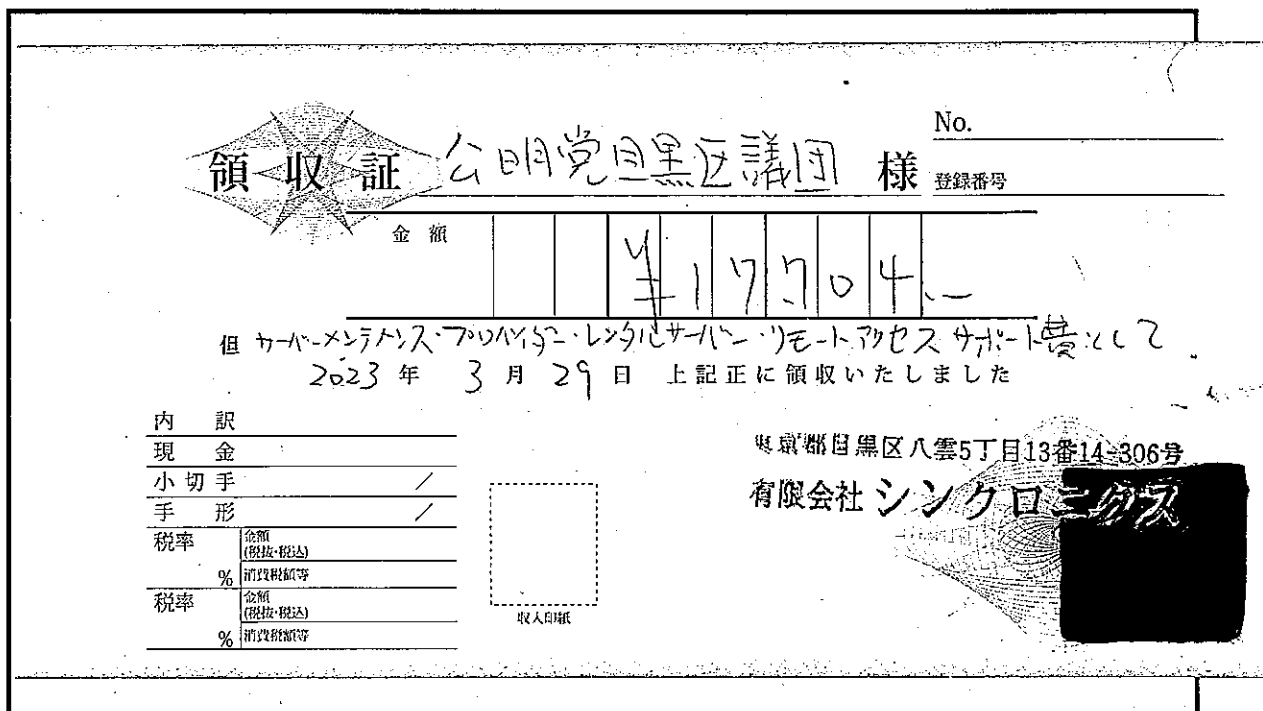 No.
領収証 公明党目黒区議団 様
登録番号
金額 ¥17704.-
但 サーバーメンテナンス・プロバイダー・レンタルサーバー・リモートアクセス サポート費として
2023年 3月 29日 上記正に領収いたしました
内訳
現金
小切手 /
手形 /
税率 % 金額(税抜・税込)
消費税額等
税率 % 金額(税抜・税込)
消費税額等
収入印紙
東京都目黒区八雲5丁目13番14-306号
有限会社 シンクロニクス